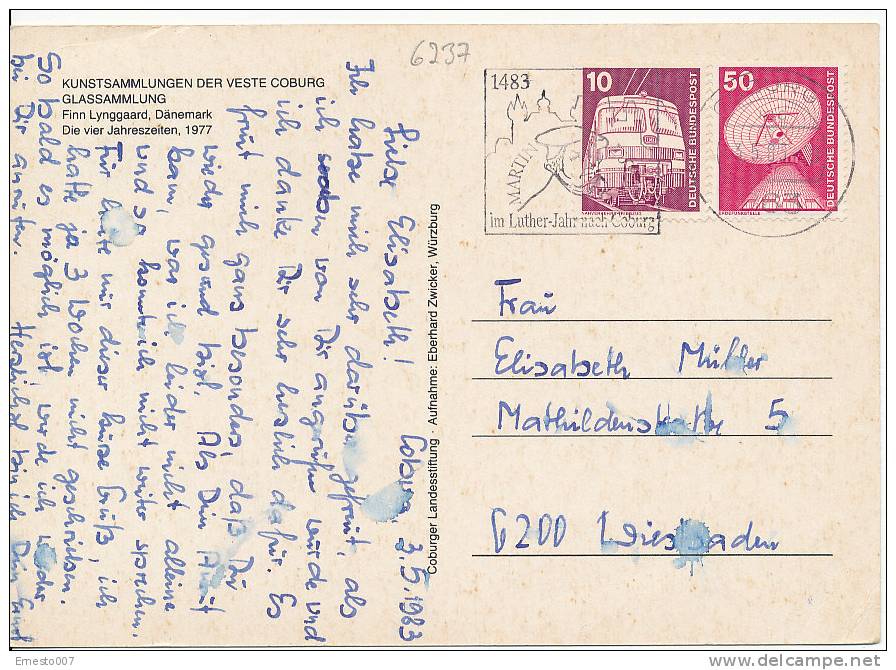 6237
KUNSTSAMMLUNGEN DER VESTE COBURG
GLASSAMMLUNG
Finn Lynggaard, Dänemark
Die vier Jahreszeiten, 1977
Coburger Landesstiftung · Aufnahme: Eberhard Zwicker, Würzburg
1483
MARTIN
im Luther-Jahr nach Coburg
10
DEUTSCHE BUNDESPOST
NAHVERKEHRS-TRIEBZUG
50
DEUTSCHE BUNDESPOST
ERDFUNKSTELLE
Coburg, 3.5.1983
Liebe Elisabeth!
Ich habe mich sehr darüber gefreut, als
ich von Dir angerufen wurde und
ich danke Dir sehr herzlich dafür. Es
freut mich ganz besonders, daß Du
wieder gesund bist. Als Dein Anruf
kam, war ich leider nicht alleine
und so konnte ich nicht weiter sprechen.
Für heute nur dieser kurze Gruß, ich
hatte ja 3 Wochen nicht geschrieben.
So bald es möglich ist, werde ich wieder
bei Dir anrufen. Herzlichst bin ich Dein
Frau
Elisabeth Müller
Mathildenstraße 5
6200 Wiesbaden
Ernesto007
www.delcampe.net